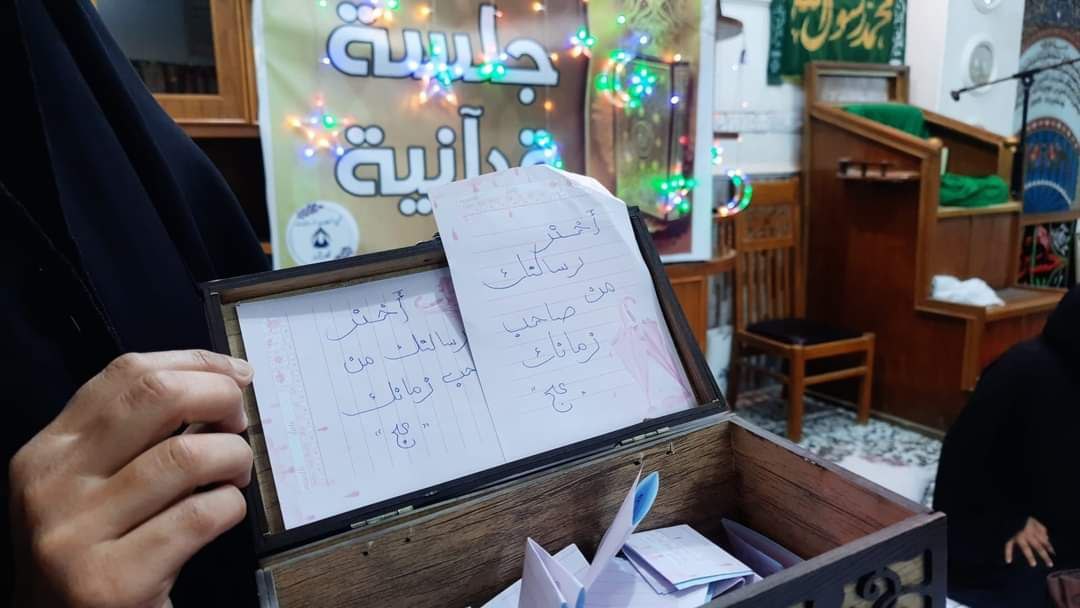 جلسة
قرآنية
محمد رسول الله
أختر
رسالتك
من
صاحب
زمانك
"عج"
أختر
رسالتك من
صاحب زمانك
"عج"